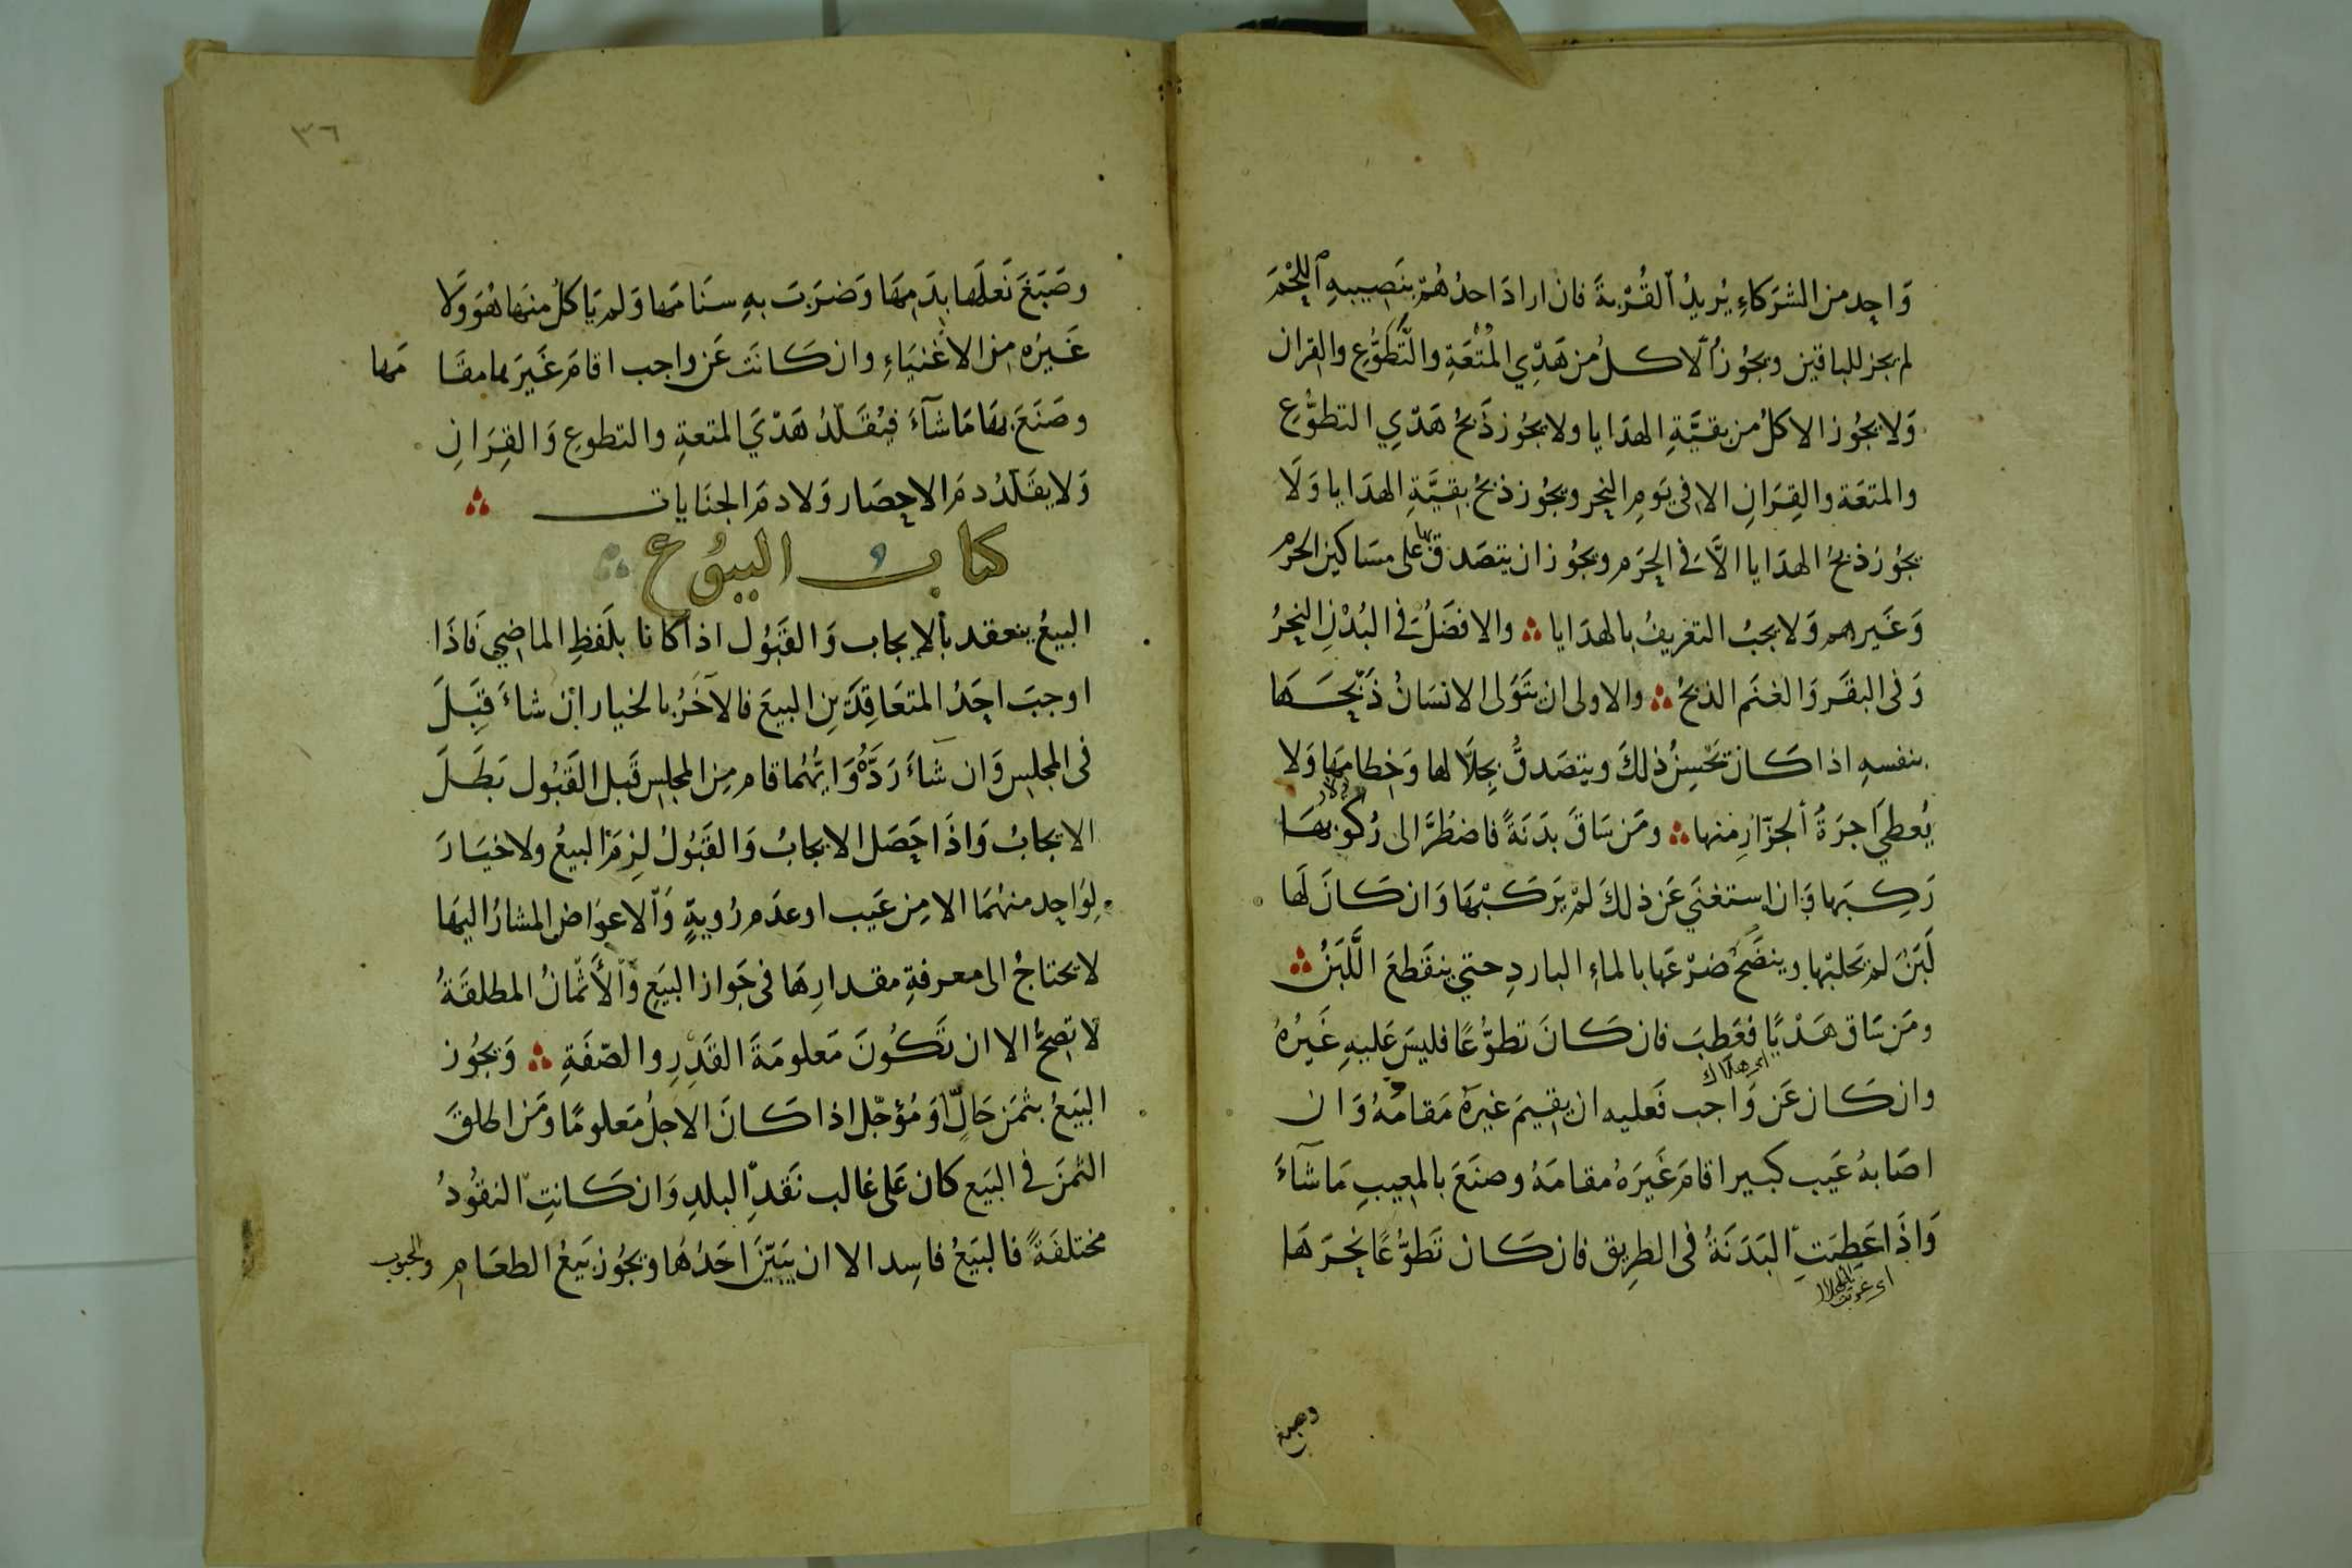 وَاحِد من الشرَكاءِ يُريدُ القُرْبةَ فان ارادَ احدُهُمْ بنَصِيبهِ اللحْمَ
لم يجز للباقين ويجُوزُ الاكلُ من هَدْيِ المُتْعَةِ والتَّطَوُّعِ والقران
وَلا يجُوز الاكلُ من بقيَّةِ الهدَايا ولا يجُوز ذَبحُ هَدْيِ التطوُّعِ
والمتعَة والقِرَانِ الا في يَومِ النحرِ ويجُوز ذبحُ بقِيَّةِ الهدَايا وَلَا
يجُوزُ ذبحُ الهدَايا الاَّ في الحَرَم ويجُوز ان يتصَدق بها على مسَاكين الحَرَم
وَغَيرهم وَلا يجبُ التعريفُ بالهدَايا ؞ والافضَلُ في البُدْنِ النحرُ
وَفى البقَر وَالغنَم الذبحُ ؞ والاولى ان يتَوَلى الانسَانُ ذَبْحَهَا
بنفسهِ اذا كَانَ يَحْسِنُ ذلكَ ويتصَدقُ بجِلَالها وَخِطامِهَا وَلا
يُعطي اُجرَةَ الجزّارِ منها ؞ ومَن سَاقَ بدَنَةً فاضطُرَّ الى رُكُوبهَا
رَكِبَها وَان استغنَي عَن ذلكَ لمْ يَركَبْهَا وَان كَانَ لَها
لَبَنٌ لم يَحلبْها وينضَحُ ضَرْعَها بالماءِ الباردِ حتي ينقَطعَ اللَّبَنُ ؞
ومَن سَاق هَدْيًا فعَطِبَ فان كَانَ تطوُّعًا فليسَ عَليهِ غَيرُهُ
اى هلاك
وان كَان عَن وَاجب فَعليه ان يقِيمَ غيرَهُ مَقامَهُ وَان
اصَابهُ عَيب كبير اقامَ غَيرَهُ مقامَهُ وصنَعَ بالمعِيبِ مَا شآءَ
وَاذَا عَطِبَتِ البَدَنَةُ فى الطرِيق فان كَان تَطوُّعًا نحَرَهَا
وصبغ
٣٦
وصَبَغَ نَعلَها بدَمِهَا وَضَرَبَ بهِ سَنَامَها وَلم يَاكلْ منهَا هُوَ وَلا
غَيرُه مِن الاغْنيَاءِ وان كَانَت عَن واجب اقامَ غَيرَها مقَامَها
وصَنَعَ بهَا مَا شآءَ فيُقَلّدُ هَدْيَ المتعةِ والتطوعِ وَالقِرَانِ
وَلا يقَلّدُ دمَ الاحِصَار وَلا دمَ الجنَايات ؞
كتاب البيُوع
البيعُ ينعقد بالإيجاب وَالقَبُول اذا كانا بلَفظِ الماضِي فَاذَا
اوجبَ احَدُ المتعَاقِدَينِ البيعَ فالآخَرُ بالخيار اِن شاءَ قَبِلَ
فى المجلِس وَان شآءَ رَدَّهُ وَايُّهُما قام مِن المجلِس قَبل القَبُول بَطَلَ
الايجابُ وَاذَا حَصَل الايجابُ وَالقَبُولُ لزِمَ البيعُ ولا خيَارَ
لِوَاحِد منهُمَا الا مِن عَيب او عدَم رُويةٍ وَالاعوَاض المشارُ اليهَا
لا يحتاجُ الى معرفةِ مقدارِهَا فى جَواز البَيعِ وَالأَثمَانُ المطلقَةُ
لا تصِحُّ الا ان تَكُونَ مَعلومَةَ القَدرِ والصّفَةِ ؞ وَيجُوز
البَيعُ بثمَن حَالٍّ اَو مُؤجّل اذا كَانَ الاجلُ مَعلومًا ومَن اطلقَ
الثمَنَ في البَيع كان عَلى غالب نَقدِ البلدِ وَان كَانتِ النقُودُ
مختلفَةً فالبَيعُ فاسِد الا ان يبَيّنَ احَدُهَا ويجُوز بَيعُ الطعَامِ والحبوب